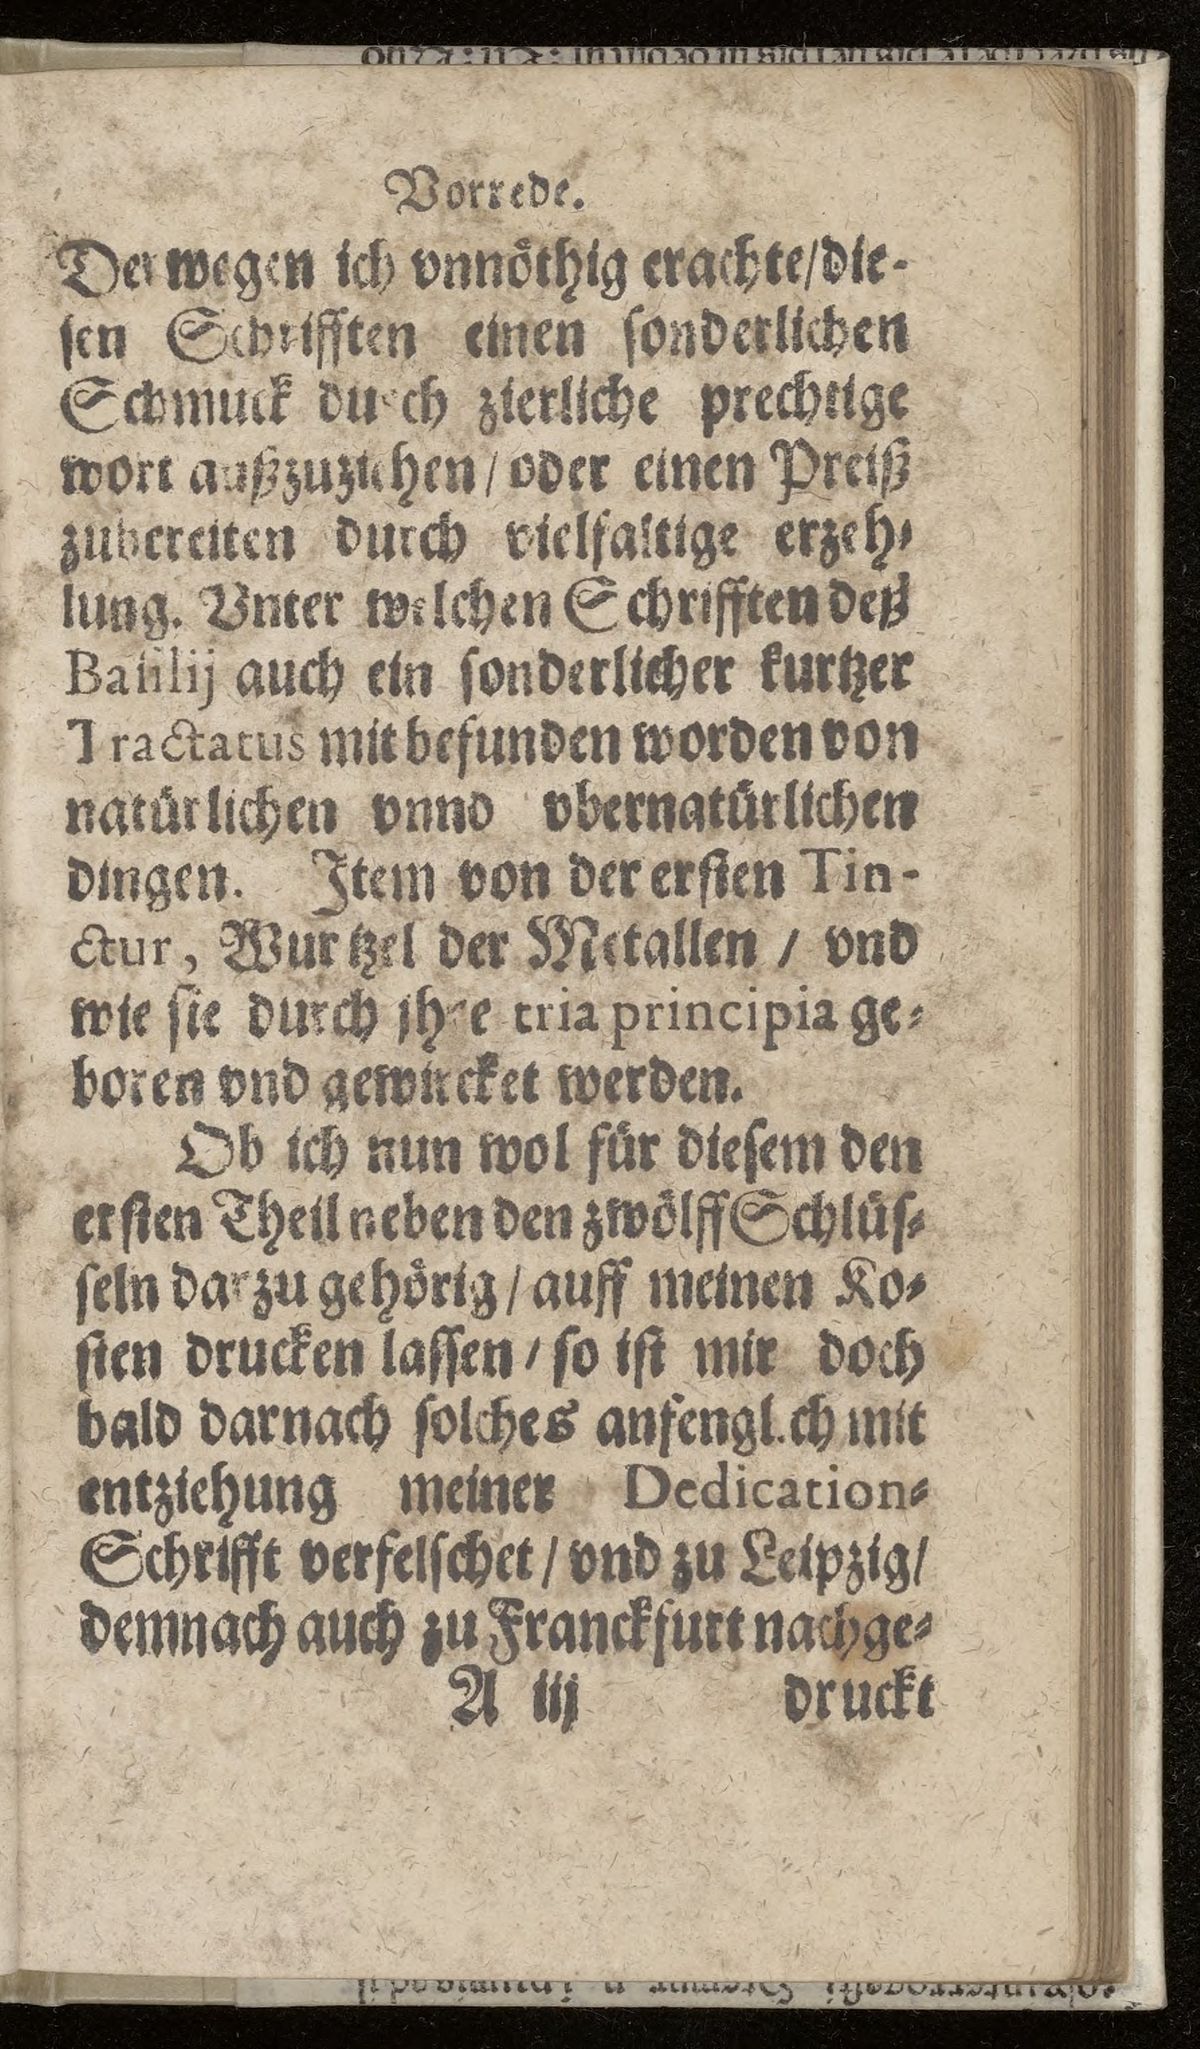 Vorrede.
Derwegen ich vnnöthig erachte/die-
sen Schrifften einen sonderlichen
Schmuck durch zierliche prechtige
wort außzuziehen/oder einen Preiß
zubereiten durch vielfaltige erzeh-
lung. Vnter welchen Schrifften deß
Basilij auch ein sonderlicher kurtzer
Tractatus mit befunden worden von
natürlichen vnnd vbernatürlichen
dingen. Item von der ersten Tin-
ctur, Wurtzel der Metallen / vnd
wie sie durch jhre tria principia ge-
boren vnd gewircket werden.
Ob ich nun wol für diesem den
ersten Theil neben den zwölff Schlüs-
seln darzu gehörig/auff meinen Ko-
sten drucken lassen/so ist mir doch
bald darnach solches anfenglich mit
entziehung meiner Dedication-
Schrifft verfelschet/vnd zu Leipzig/
demnach auch zu Franckfurt nachge-
A iij druckt